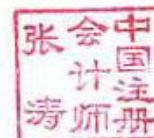 中国注册
会计师
张涛